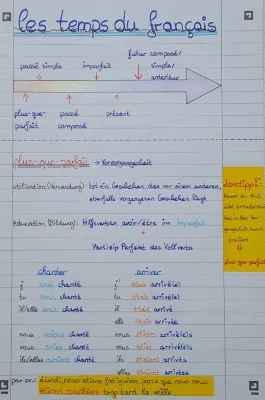 les temps du français
futur composé/
passé simple imparfait simple/
antérieur
plus-que- passé présent
parfait composé
plus-que-parfait → Vorvergangenheit
utilisation (Verwendung): Ist ein Geschehen, das vor einem anderen,
ebenfalls vergangenen Geschehen liegt.
éducation (Bildung): Hilfsverben avoir/être im imparfait
+
Partizip Perfekt des Vollverbs
chanter arriver
j' avais chanté j' étais arrivé(e)
tu avais chanté tu étais arrivé(e)
il/elle avait chanté il était arrivé
elle était arrivée
nous avions chanté nous étions arrivé(e)s
vous aviez chanté vous étiez arrivé(e)s
ils/elles avaient chanté ils étaient arrivés
elles étaient arrivées
par ex.: Lundi, nous étions fatigué(e)s parce que nous nous
étions couché(e)s trop tard la veille.
plus-que-parfait